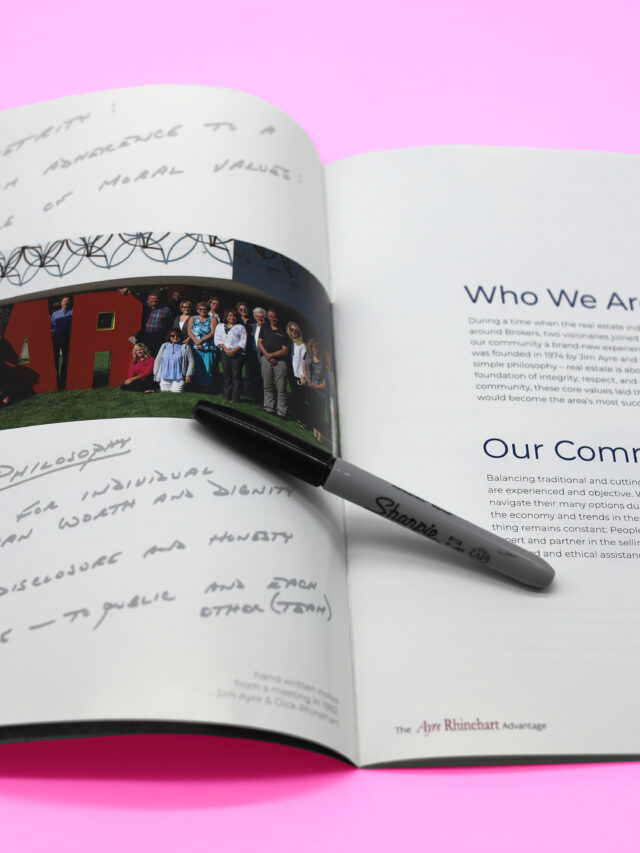 :
ADHERENCE TO A
OF MORAL VALUES:
AR
PHILOSOPHY
FOR INDIVIDUAL
WORTH AND DIGNITY
DISCLOSURE AND HONESTY
— TO PUBLIC AND EACH
OTHER (TEAM)
hand written notes
from a meeting in 1982
- Jim Ayre & Dick Rhinehart
Sharpie
Who We Ar
During a time when the real estate in
around Brokers, two visionaries joined
our community a brand new experien
was founded in 1974 by Jim Ayre and
simple philosophy – real estate is abo
foundation of integrity, respect, and
community, these core values laid th
would become the area's most succ
Our Comm
Balancing traditional and cutting
are experienced and objective. W
navigate their many options du
the economy and trends in the
thing remains constant: People
pert and partner in the sellin
d and ethical assistanc
The Ayre Rhinehart Advantage